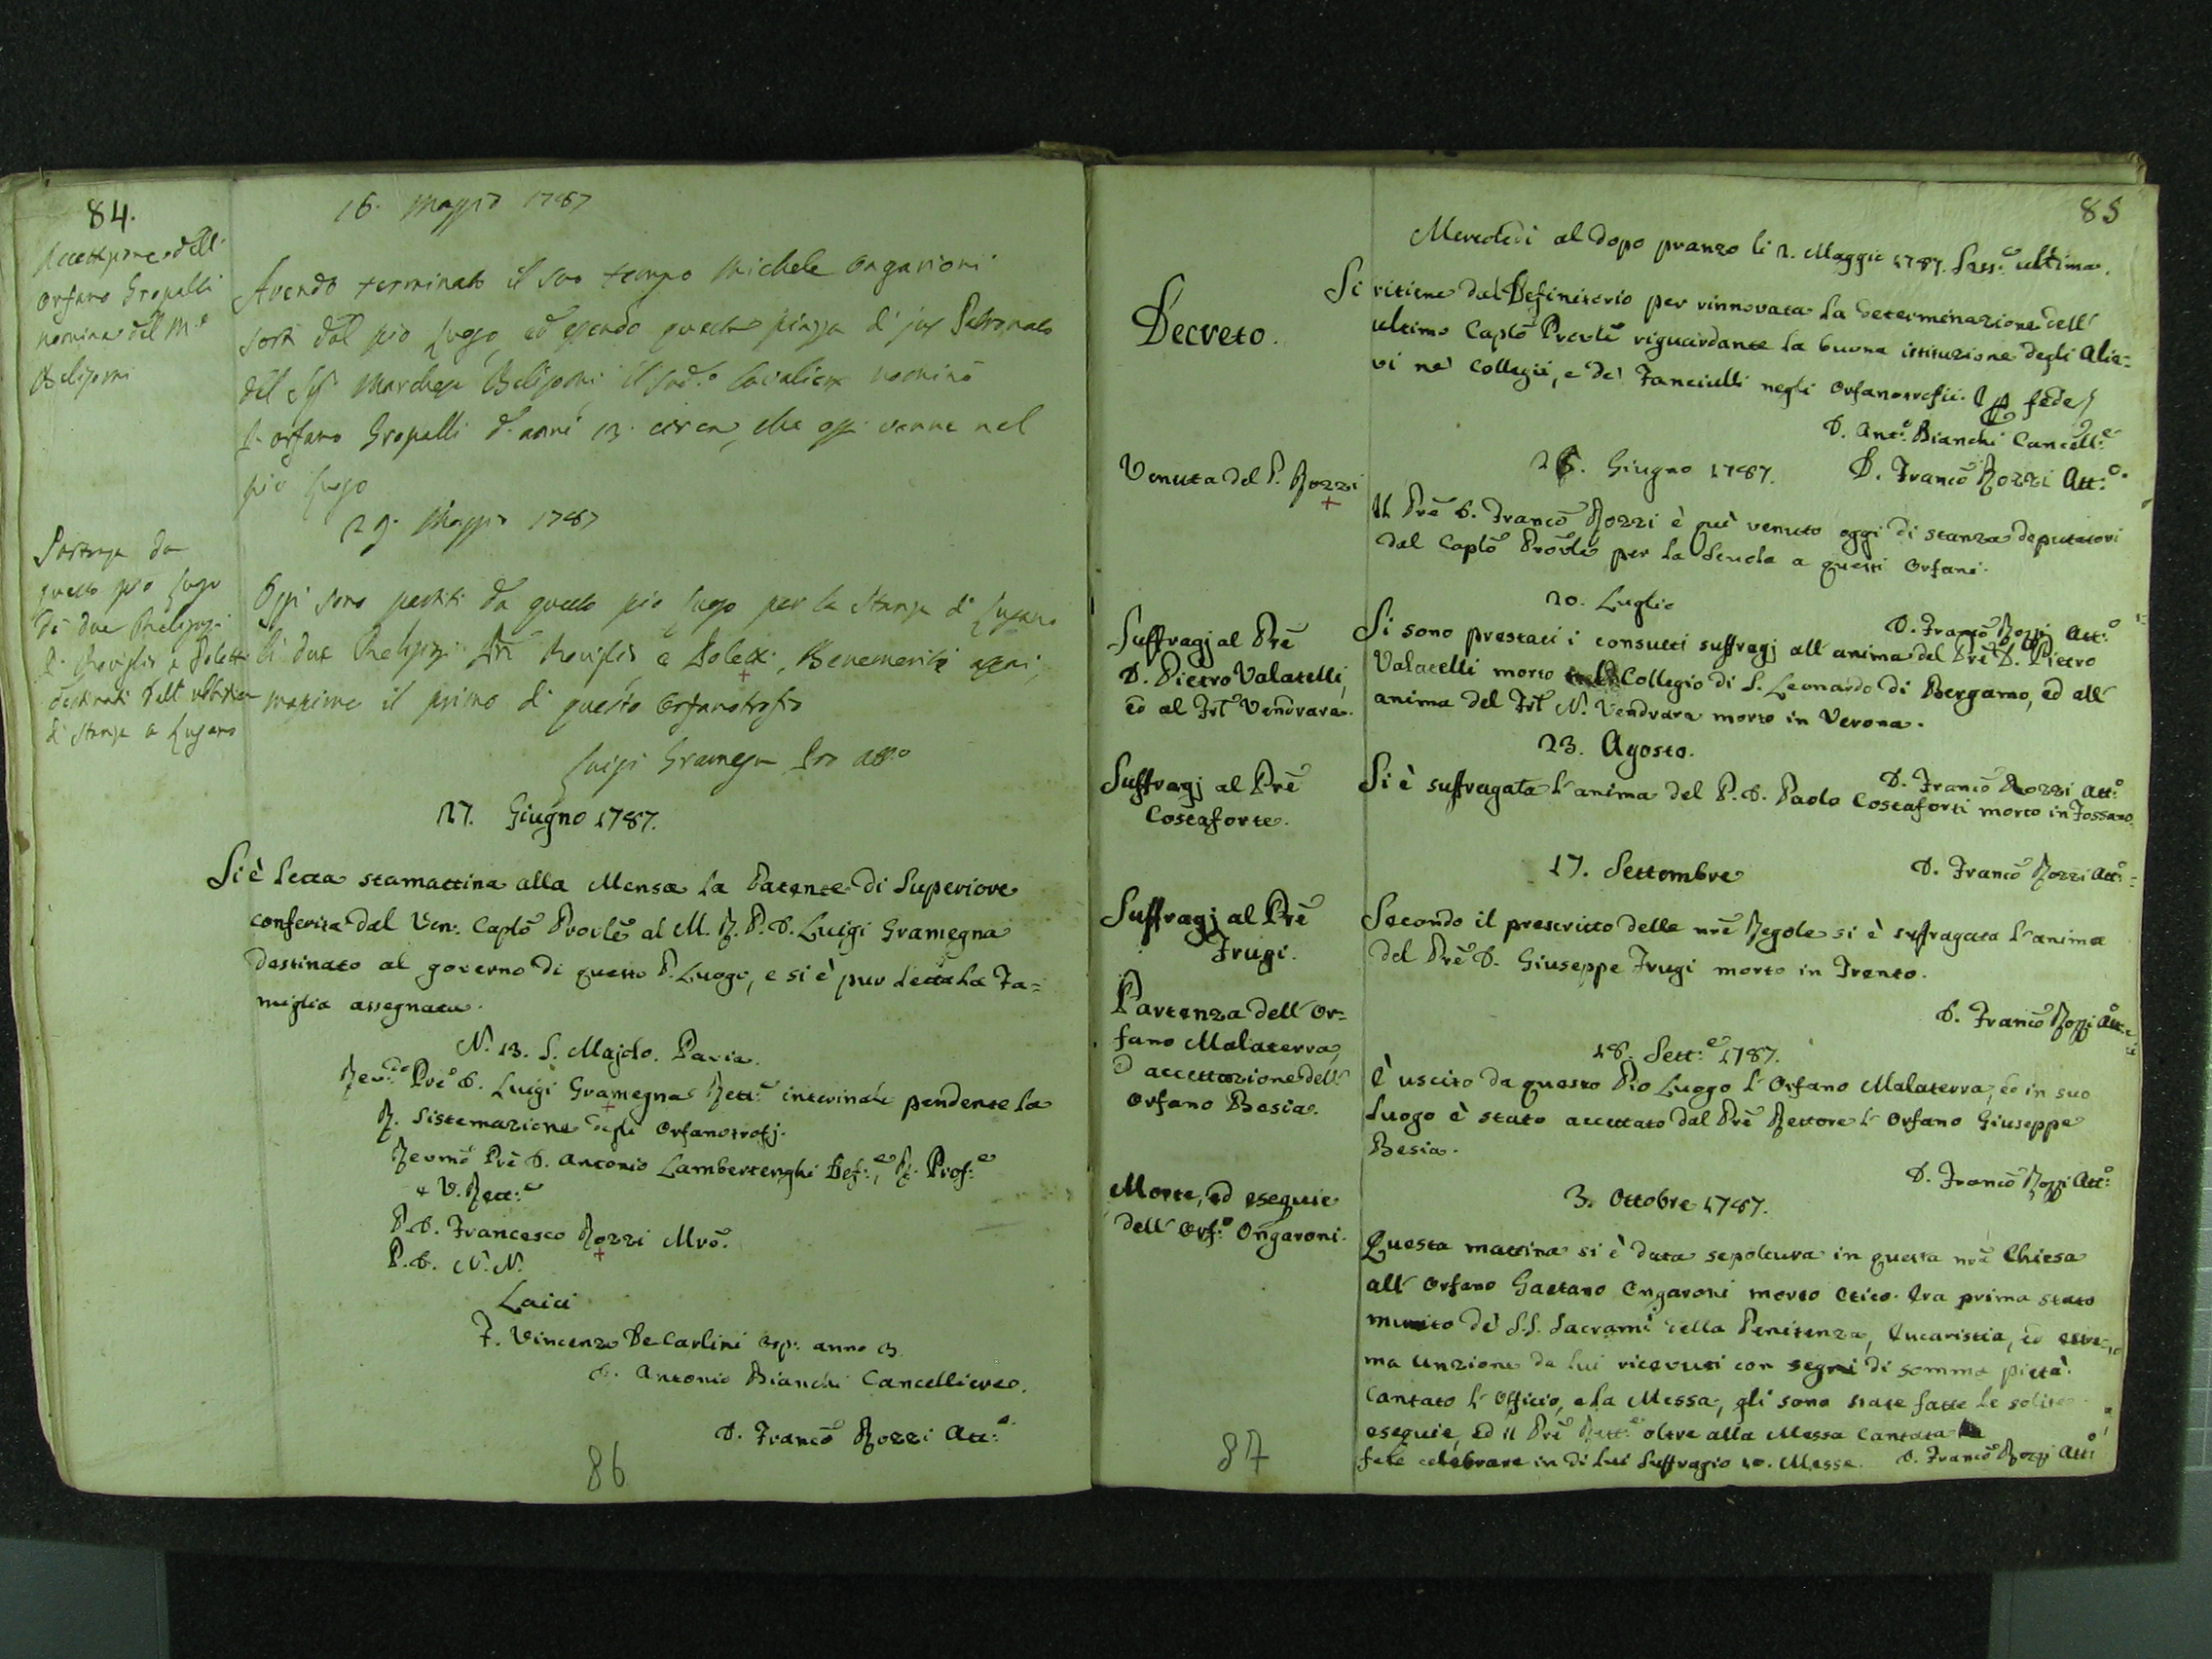 84.
16. Maggio 1787
Accettazione dell'
orfano Gropalli
nomina del M.e
Belisoni
Avendo terminato il suo tempo Michele Ongarioni
sortì dal pio luogo, ed essendo questa piazza di jus Patronato
del Sig. Marchese Belisoni, il sud.o Cavaliere nominò
l'orfano Gropalli d'anni 13. circa, che oggi venne nel
pio luogo
29. Maggio 1787
Partenza da
questo pio luogo
di due Religiosi
destinati dall'ubbidienza
di stanza a Lugano
Oggi sono partiti da questo pio luogo per la stanza di Lugano
li due Religiosi Roviglio e Poletti, Benemeriti
massime il primo di questo Orfanotrofio
Luigi Gramegna Pro att.o
27. Giugno 1787.
Si è letta stamattina alla Mensa la Patente di Superiore
conferita dal Ven. Caplo Provle al M. R. P. D. Luigi Gramegna
destinato al governo di questo P. Luogo, e si è pur letta la Fa=
miglia assegnata.
N. 13. S. Majolo. Pavia.
Rev.do Pre D. Luigi Gramegna Rett.e interinale pendente la
R. Sistemazione degli Orfanotrofj.
Revmo Pre D. Antonio Lambertenghi Def.e, R. Prof.e
e V. Rett.e
P. D. Francesco Rozzi Mro.
P. D. N. N.
Laici
F. Vincenzo De Carlini osp. anno 3
D. Antonio Bianchi Cancelliere.
D. Franco Rozzi Att.o
86
85
Mercoledì al dopo pranzo li 2. Maggio 1787. Sess.e ultima.
Decreto.
Si ritiene dal Definitorio per rinnovata la determinazione dell'
ultimo Caplo Provle riguardante la buona istituzione degli Alie=
vi ne' Collegii, e de' Fanciulli negli Orfanotrofii. In fede
D. Ant.o Bianchi Cancell.e
D. Franco Rozzi Att.o
Giugno 1787.
Venuta del P. Rozzi
Il Pre D. Franco Rozzi è quì venuto oggi di stanza deputatovi
dal Caplo Provle per la Scuola a questi Orfani.
20. Luglio
D. Franco Rozzi Att.o
Suffragj al Pre
D. Pietro Valatelli,
ed al Frl Vendrara.
Si sono prestati i consueti suffragj all'anima del Pre D. Pietro
Valatelli morto Collegio di S. Leonardo di Bergamo, ed all'
anima del Frl N. Vendrara morto in Verona.
23. Agosto.
D. Franco Rozzi Att.o
Suffragj al Pre
Costaforte.
Si è suffragata l'anima del P. D. Paolo Costaforti morto in Fossano.
17. Settembre
D. Franco Rozzi Att.o
Suffragj al Pre
Frugi.
Secondo il prescritto delle nre Regole si è suffragata l'anima
del Pre D. Giuseppe Frugi morto in Trento.
D. Franco Rozzi Att.o
18. Sett.e 1787.
Partenza dell'Or=
fano Malaterra,
ed accettazione dell'
Orfano Besia.
È uscito da questo Pio Luogo l'Orfano Malaterra, ed in suo
luogo è stato accettato dal Pre Rettore l'Orfano Giuseppe
Besia.
D. Franco Rozzi Att.o
3. Ottobre 1787.
Morte, ed esequie
dell'Orf.o Ongaroni.
Questa mattina si è data sepoltura in questa nra Chiesa
all'Orfano Gaetano Ongaroni morto etico. Era prima stato
munito de' SS. Sacrami della Penitenza, Eucaristia, ed estre=
ma Unzione da lui ricevuti con segni di somma pietà.
Cantato l'Officio, e la Messa, gli sono state fatte le solite
esequie, ed il Pre Rett.e oltre alla Messa cantata
fece celebrare in di lui suffragio 10. Messe. D. Franco Rozzi Att.o
87